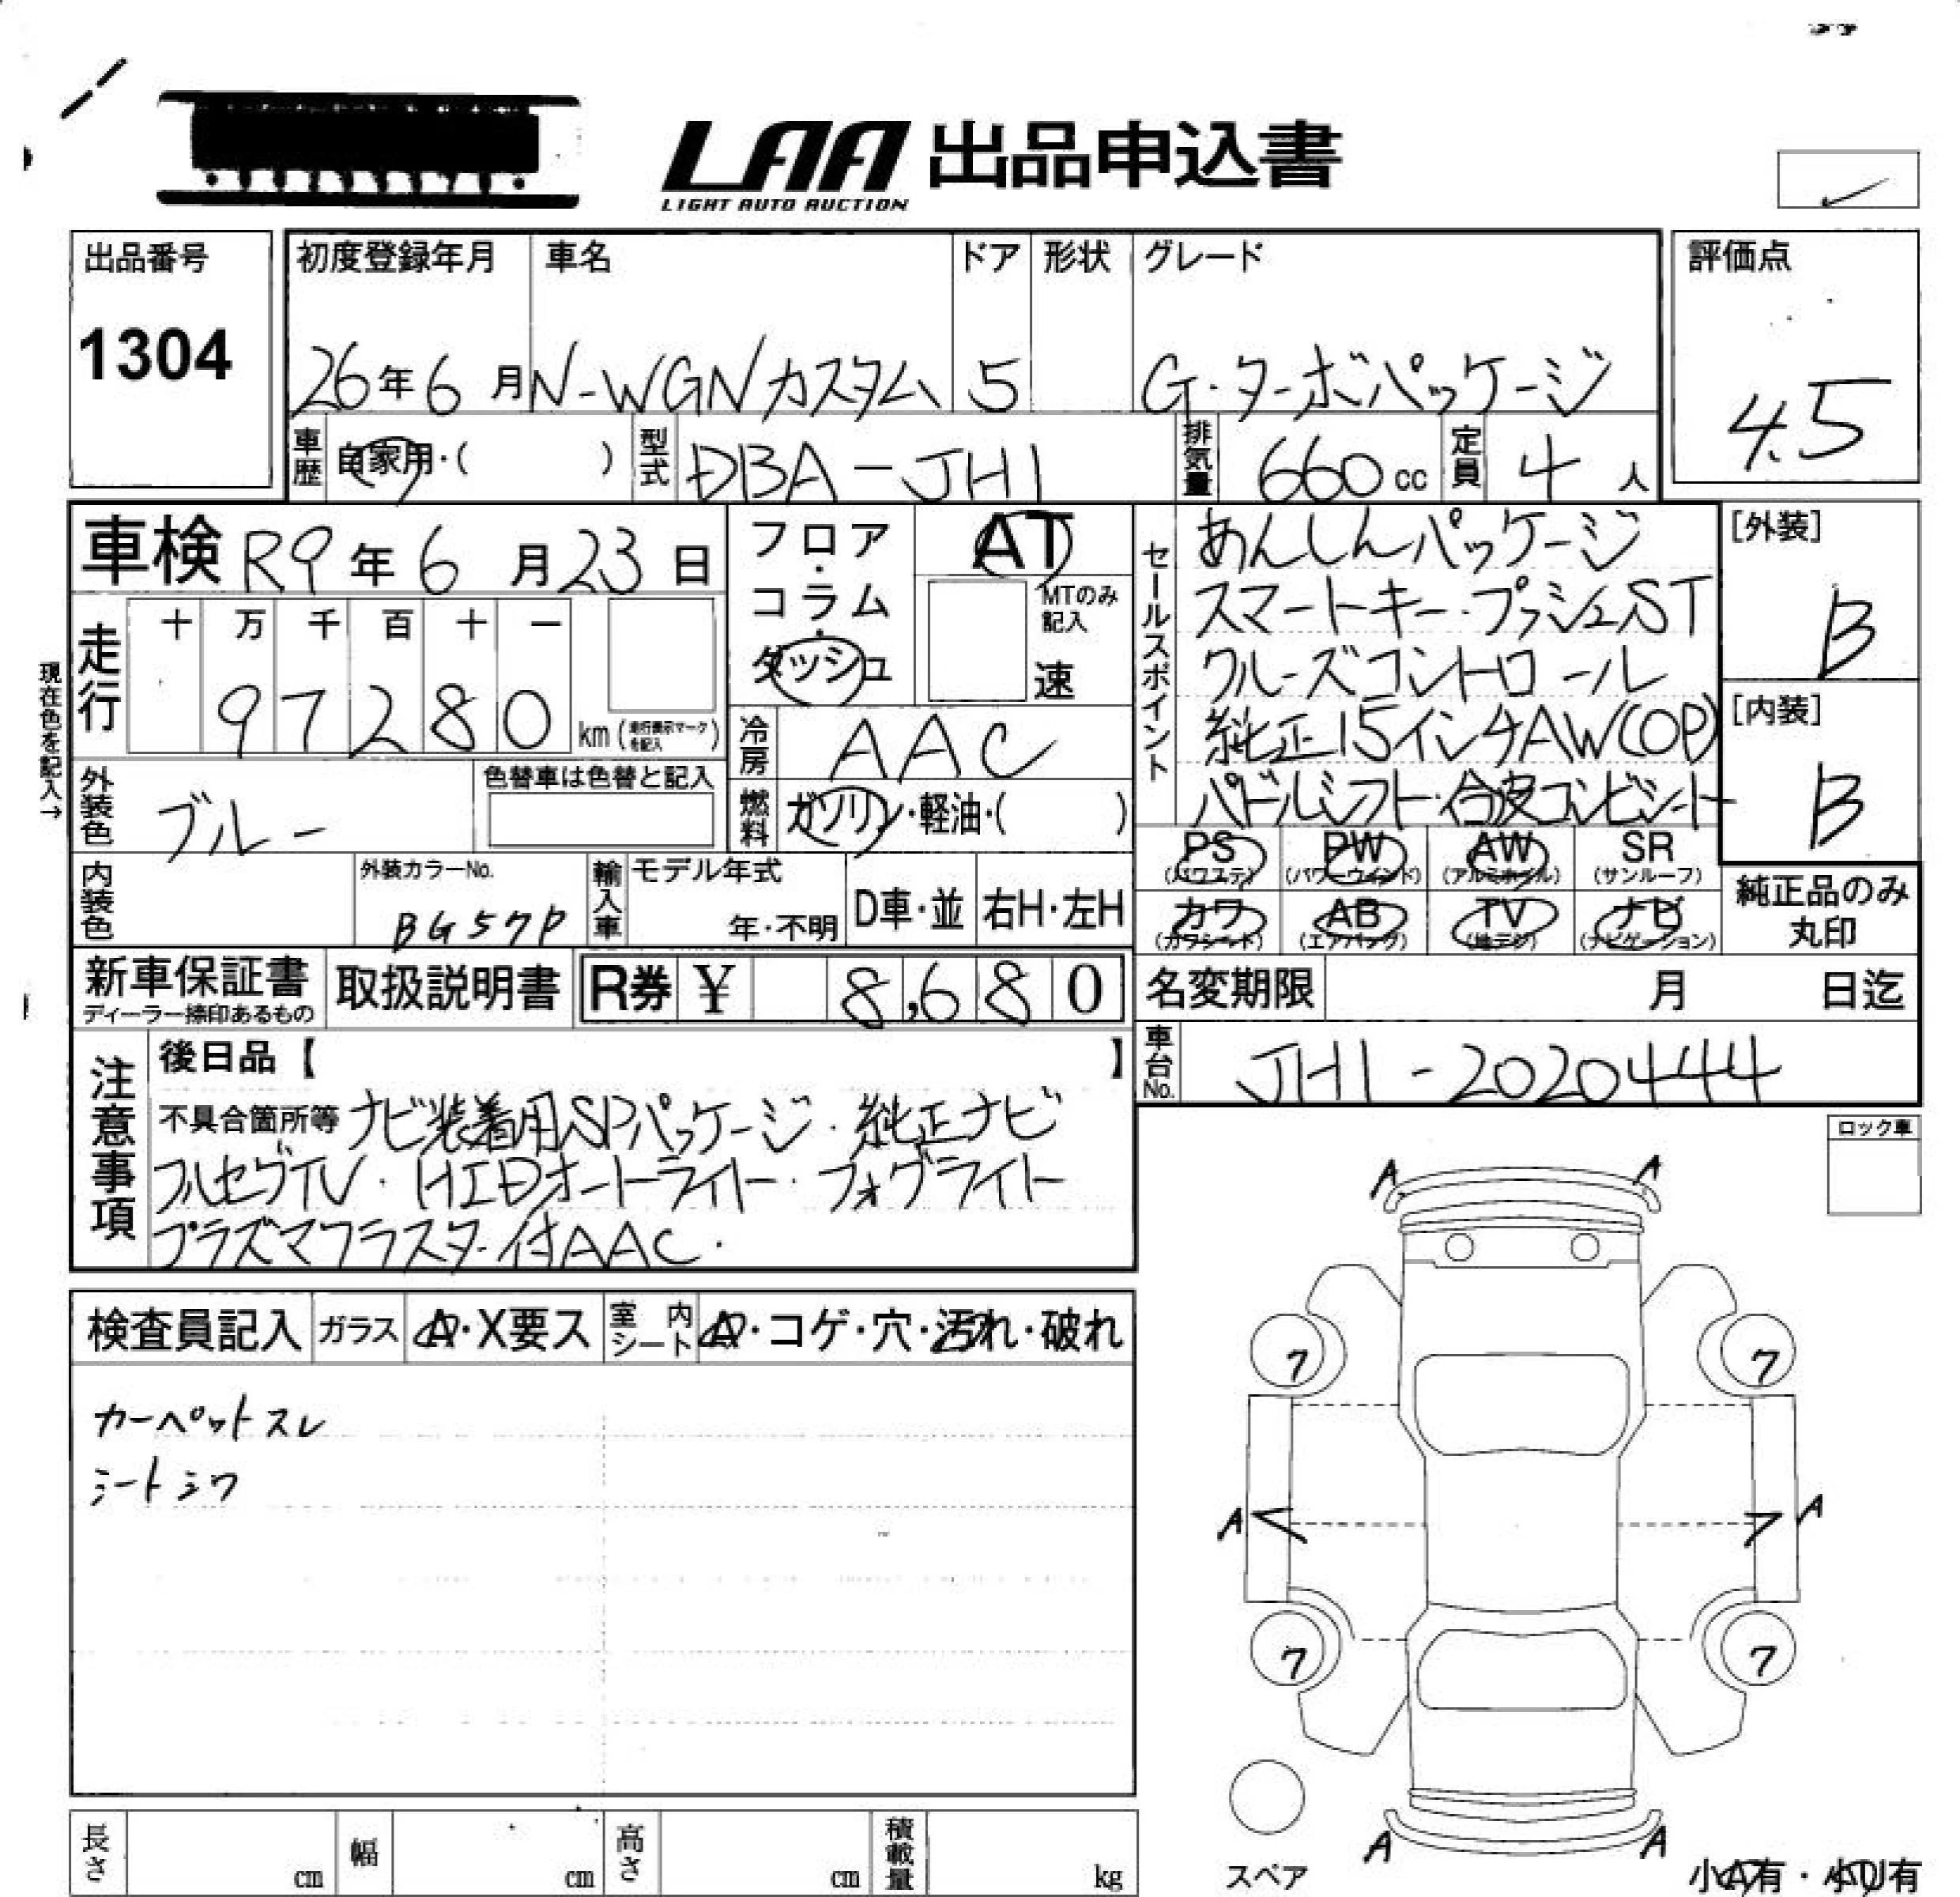 LAA 出品申込書
LIGHT AUTO AUCTION
出品番号
1304
初度登録年月 車名 ドア 形状 グレード
26年6月 N-WGNカスタム 5 G・ターボパッケージ
評価点
4.5
車歴 自家用・( ) 型式 DBA-JH1 排気量 660cc 定員 4人
車検 R9年6月23日
フロア・コラム・ダッシュ
AT
MTのみ記入
速
セールスポイント
あんしんパッケージ
スマートキー・プッシュST
クルーズコントロール
純正15インチAW(OP)
パドルシフト・合皮コンビシート
[外装]
B
[内装]
B
現在色を記入→
走行 十 万 千 百 十 一
97280 km (走行表示マークを記入)
冷房 AAC
燃料 ガソリン・軽油・( )
外装色 ブルー 色替車は色替と記入
内装色 外装カラーNo. BG57P
輸入車 モデル年式 年・不明 D車・並 右H・左H
PS (パワステ) PW (パワーウィンド) AW (アルミホイル) SR (サンルーフ)
カワ (カワシート) AB (エアバッグ) TV (地デジ) ナビ (ナビゲーション)
純正品のみ丸印
新車保証書 ディーラー捺印あるもの 取扱説明書 R券 ¥ 8,680
名変期限 月 日迄
車台No. JH1-2020444
注意事項
後日品【 】
不具合箇所等 ナビ装着用SPパッケージ・純正ナビ
フルセグTV・HIDオートライト・フォグライト
プラズマクラスター付AAC・
ロック車
検査員記入 ガラス A・X要ス 室内シート A・コゲ・穴・汚れ・破れ
カーペットスレ
シートシワ
A A
7 7
A A
7 7
A A
スペア
小A有・小U有
長さ cm 幅 cm 高さ cm 積載量 kg